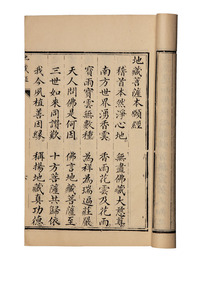 地藏菩薩本願經
稽首本然淨心地 無盡佛藏大慈尊
南方世界湧香雲 香雨花雲及花雨
寶雨寶雲無數種 為祥為瑞遍莊嚴
天人問佛是何因 佛言地藏菩薩至
三世如來同讚歎 十方菩薩共歸依
我今夙植善因緣 稱揚地藏真功德